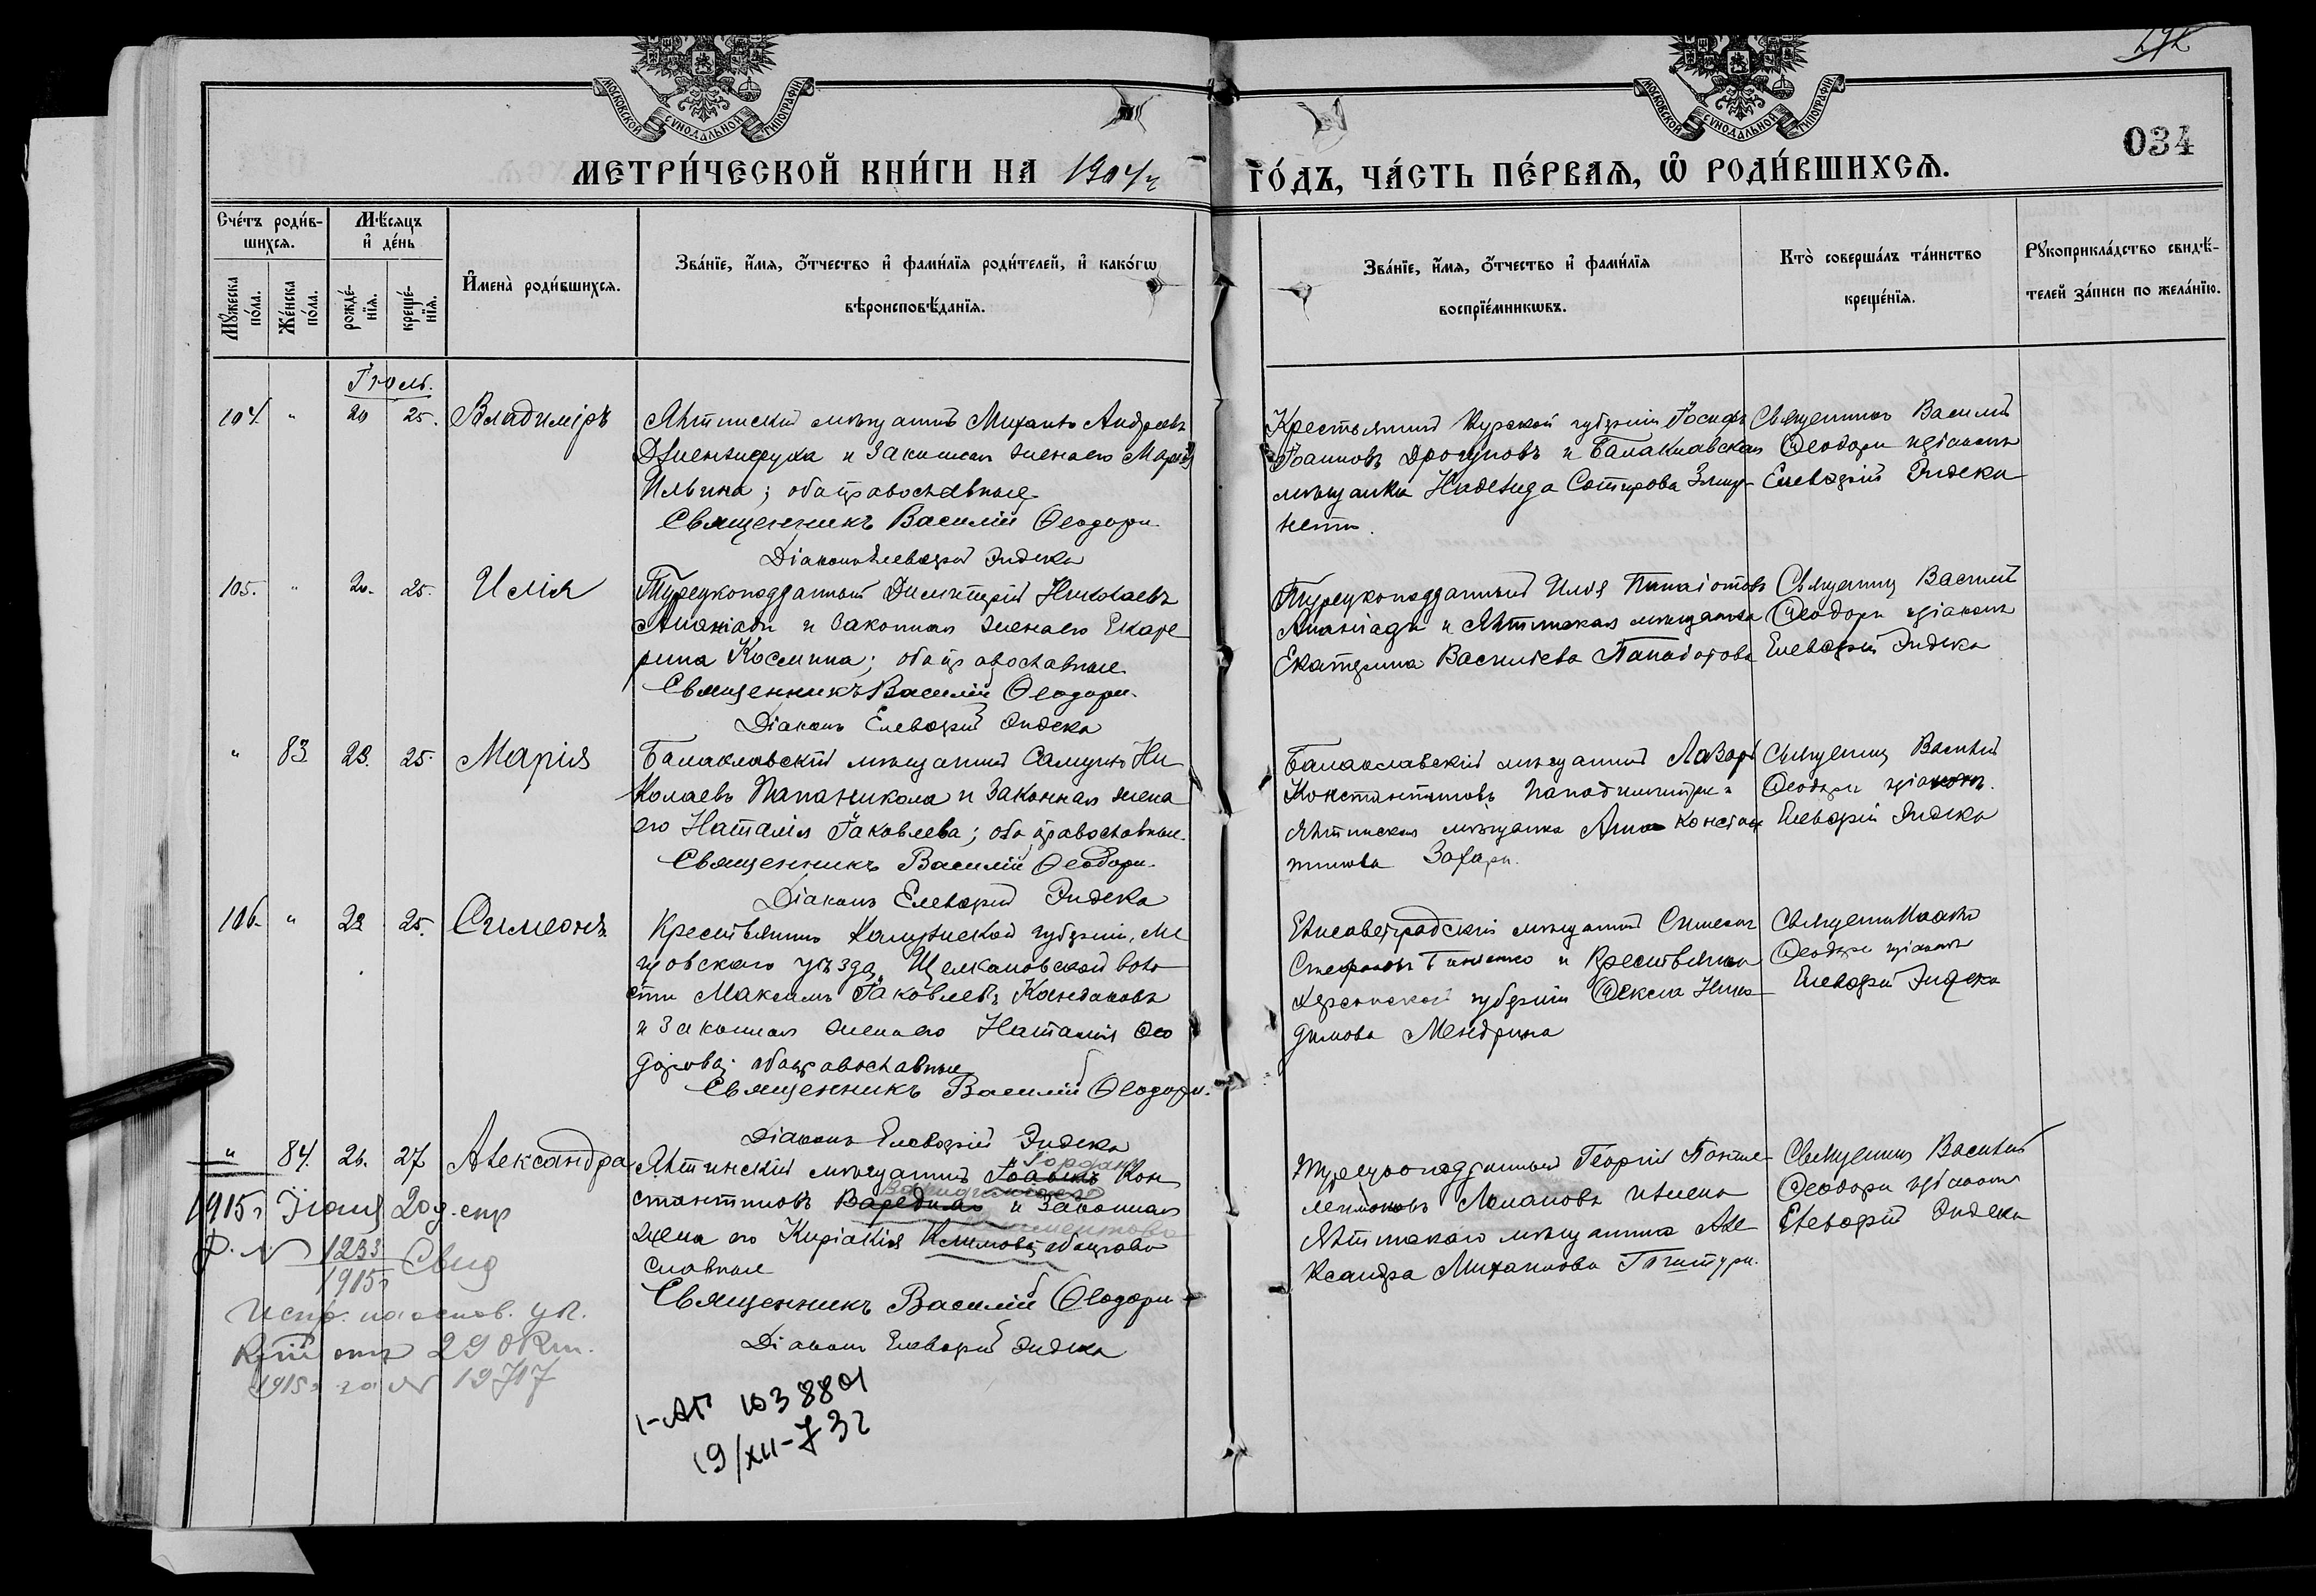 МОСКОВСКОЙ СУНОДАЛЬНОЙ ТИПОГРАФІИ
МОСКОВСКОЙ СУНОДАЛЬНОЙ ТИПОГРАФІИ
034
МЕТРИ́ЧЕСКОЙ КНИ́ГИ НА 1904 г
ГО́ДЪ, ЧА́СТЬ ПЕ́РВАѦ, Ѡ҆ РОДИ́ВШИХСѦ.
Сче́тъ роди́в-
шихся.
Мѣ́сяцъ
и҆ де́нь
Мꙋ́жеска по́ла.
Же́нска по́ла.
рожде́-нїя.
креще́-нїя.
И҆мена̀ роди́вшихся.
Зва́нїе, и҆́мя, ѻ҆́тчество и҆ фами́лїя роди́телей, и҆ како́гѡ
вѣроисповѣ́данїя.
Зва́нїе, и҆́мя, ѻ҆́тчество и҆ фами́лїя
воспрїе́мникѡвъ.
Кто̀ соверша́лъ та́инство
креще́нїя.
Рꙋкоприкла́дство свидѣ́-
телей за́писи по жела́нїю.
Іюль.
104. " 20 25. Владиміръ
Ялтинскій мѣщанинъ Михаилъ Андреевъ
и законная жена его Марія
Ильина; оба православные
Священникъ Василій Ѳеодори.
Діаконъ Елевѳерій Эндека
Крестьянинъ Курской губерніи Іосифъ
Іоанновъ и Балаклавская
мѣщанка Надежда Сотирова
Священникъ Василій
Ѳеодори и діаконъ
Елевѳерій Эндека
105. " 20. 25. Илія
Турецкоподданный Димитрій Николаевъ
и законная жена его Екате
рина Космина; оба православные
Священникъ Василій Ѳеодори.
Діаконъ Елевѳерій Эндека
Турецкоподданный Илія Панаіотовъ
и Ялтинская мѣщанка
Екатерина Василіева
Священникъ Василій
Ѳеодори и діаконъ
Елевѳерій Эндека
" 83 23. 25. Марія
Балаклавскій мѣщанинъ Самуилъ Ни
колаевъ Папаникола и законная жена
его Наталія Іаковлева; оба православные.
Священникъ Василій Ѳеодори.
Діаконъ Елевѳерій Эндека
Балаклавскій мѣщанинъ Лазарь
Константиновъ Пападимитри и
Ялтинская мѣщанка Анна Констан
тинова Захари.
Священникъ Василій
Ѳеодори и діаконъ.
Елевѳерій Эндека
106. " 23 25. Симеонъ
Крестьянинъ Калужской губерніи, Ме
щовскаго уѣзда, Щелкановской воло
сти Максимъ Іаковлевъ
и законная жена его Наталія Ѳео
дорова; оба православные
Священникъ Василій Ѳеодори.
Діаконъ Елевѳерій Эндека
Елисаветградскій мѣщанинъ Симеонъ
Стефановъ и крестьянка
Херсонской губерніи Ѳекла Нико
димова Мендрина
Священникъ
Ѳеодори и діаконъ
Елевѳерій Эндека
" 84. 26. 27 Александра
Ялтинскій мѣщанинъ Іоаннъ Іорданъ Кон
стантиновъ и законная
жена его Киріакія Климова оба право
славные
Священникъ Василій Ѳеодори
Діаконъ Елевѳерій Эндека
Турецкоподданный Георгій Панте
леимоновъ и жена
Ялтинскаго мѣщанина Але
ксандра Михаилова
Священникъ Василій
Ѳеодори и діаконъ
Елевѳерій Эндека
1915 г
№ 1233
1915 г
Свид
Испр. на основ. ук.
29 Окт.
1915 г за № 19717
I-АП 103880
19/XII-73 г